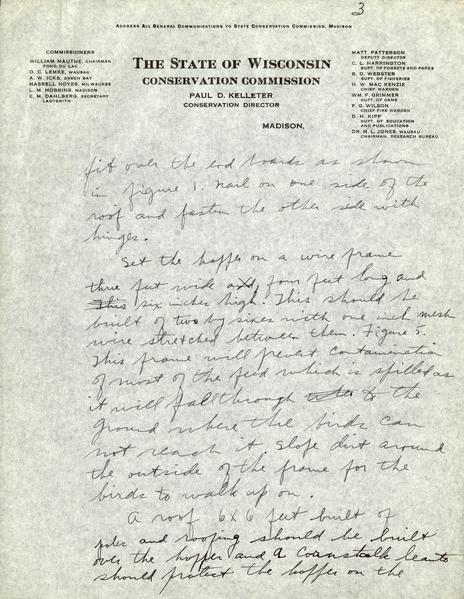 3
ADDRESS ALL GENERAL COMMUNICATIONS TO STATE CONSERVATION COMMISSION, MADISON
COMMISSIONERS
WILLIAM MAUTHE, CHAIRMAN
FOND DU LAC
O. C. LEMKE, WAUSAU
A. W. ICKS, GREEN BAY
HASKELL NOYES, MILWAUKEE
L. M. HOBBINS, MADISON
E. M. DAHLBERG, SECRETARY
LADYSMITH
THE STATE OF WISCONSIN
CONSERVATION COMMISSION
PAUL D. KELLETER
CONSERVATION DIRECTOR
MADISON,
MATT. PATTERSON
DEPUTY DIRECTOR
C. L. HARRINGTON
SUPT. OF FORESTS AND PARKS
B. O. WEBSTER
SUPT. OF FISHERIES
H. W. MAC KENZIE
CHIEF WARDEN
WM. F. GRIMMER
SUPT. OF GAME
F. G. WILSON
CHIEF FIRE WARDEN
D. H. KIPP
SUPT. OF EDUCATION
AND PUBLICATIONS
DR. M. L. JONES, WAUSAU
CHAIRMAN, RESEARCH BUREAU
fit over the end boards as shown
in figure 1. Nail on one side of the
roof and fasten the other side with
hinges.
Set the hopper on a wire frame
three feet wide and, four feet long and
This six inches high. This should be
built of two by sixes with one inch mesh
wire stretched between them. Figure 5.
This frame will prevent contamination
of most of the feed which is spilled as
it will fall through to the
ground where the birds can
not reach it. Slope dirt around
the outside of the frame for the
birds to walk up on.
A roof 6x6 feet built of
poles and roofing should be built
over the hopper and a cornstalk leanto
should protect the hopper on the